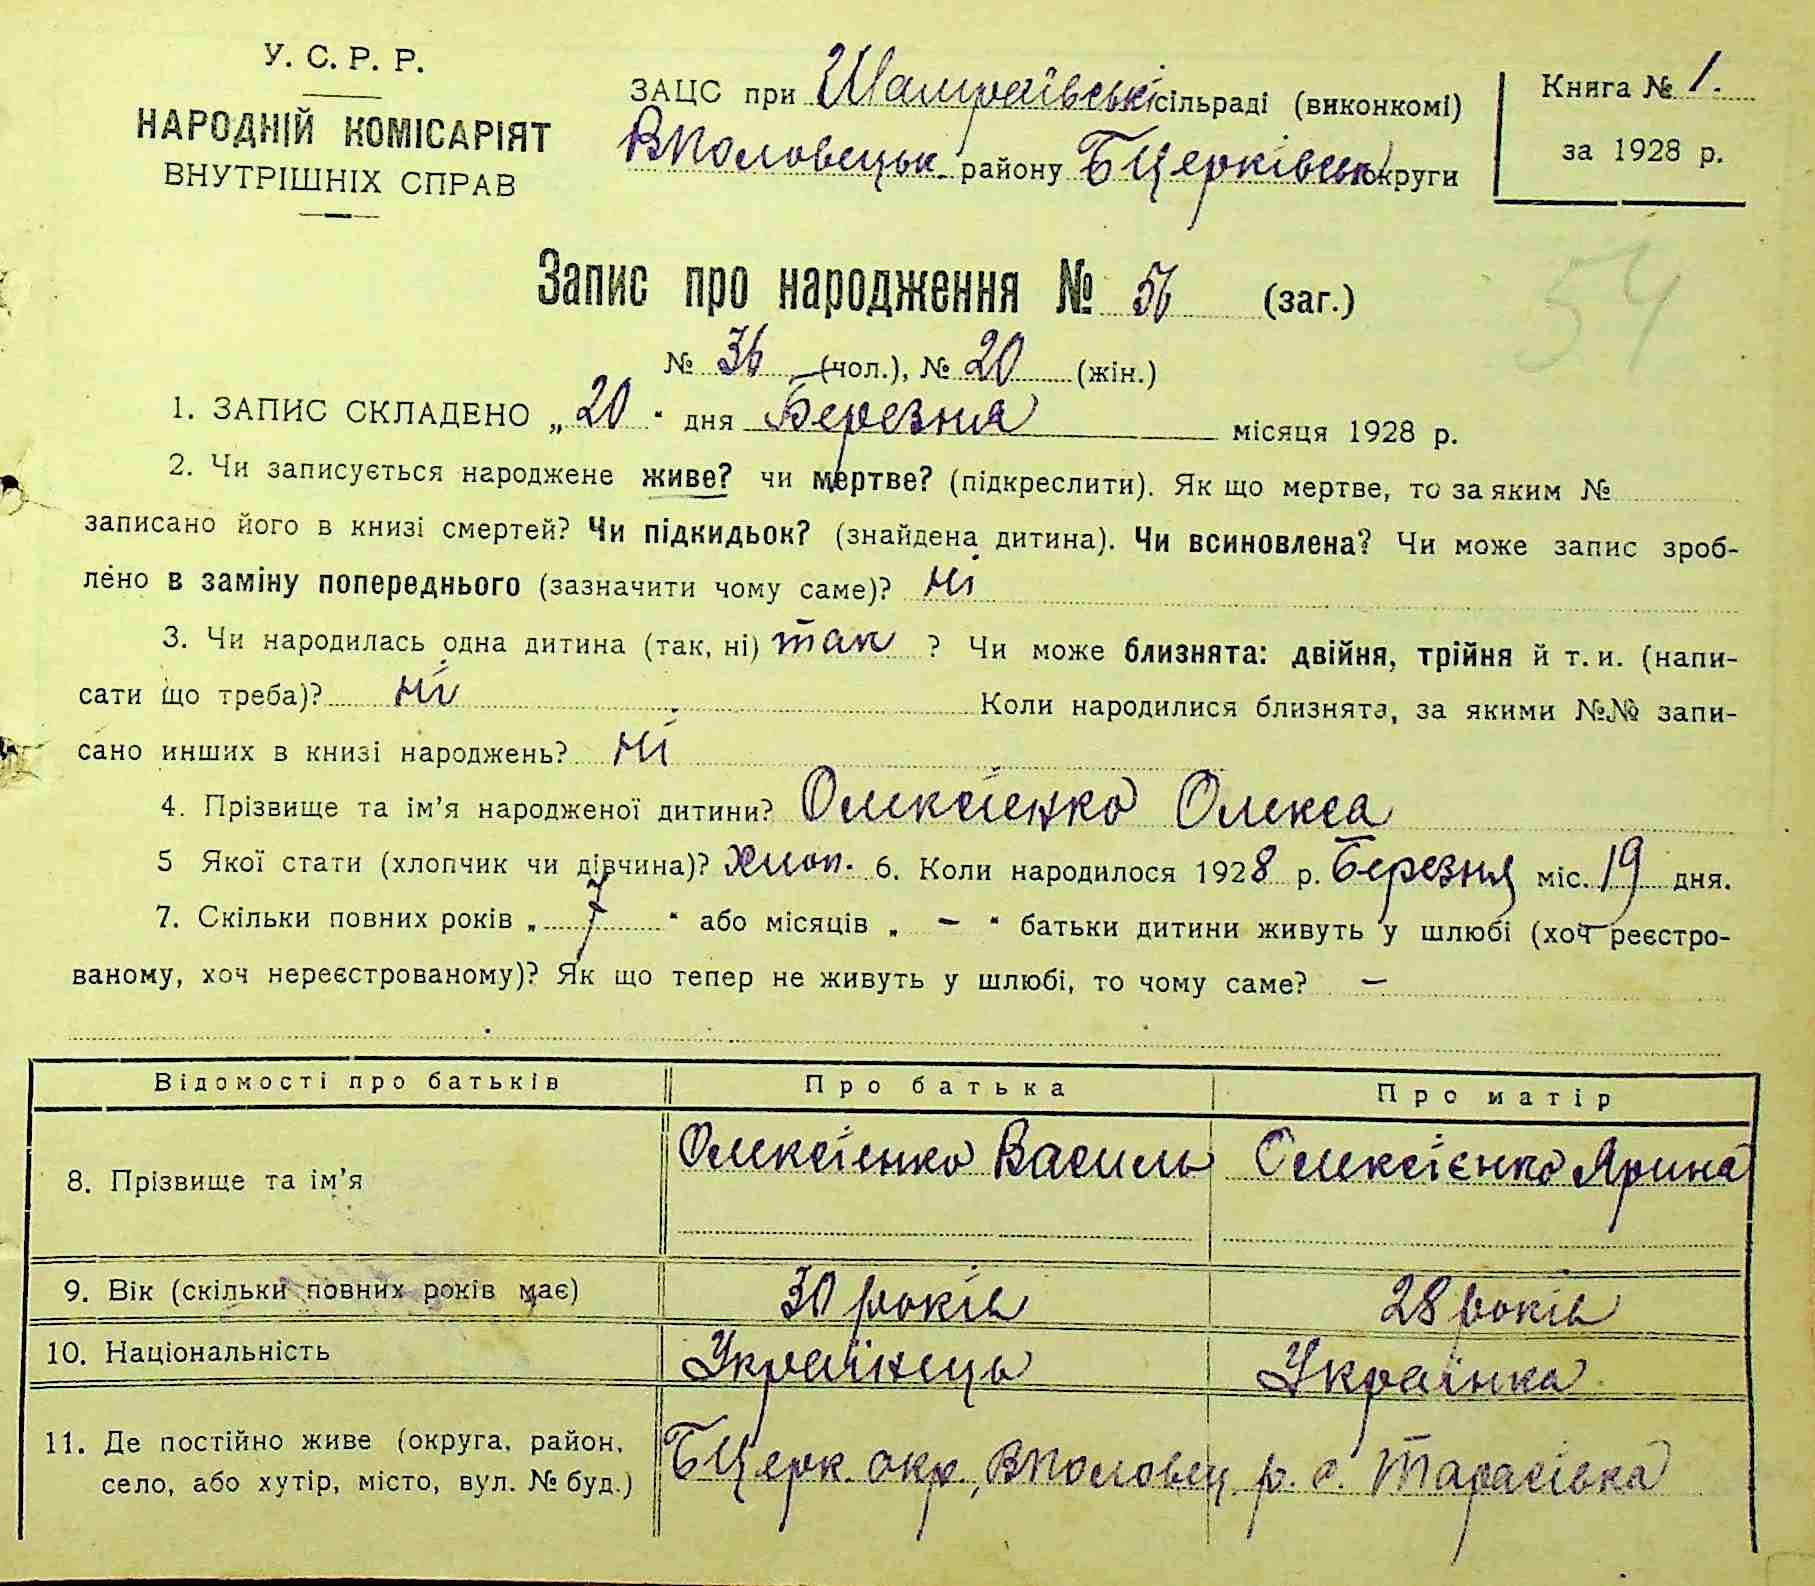 У. С. Р. Р.
НАРОДНІЙ КОМІСАРІЯТ
ВНУТРІШНІХ СПРАВ
ЗАЦС при Шамраївські сільраді (виконкомі)
ВПоловецьк. району БЦерківськ округи
Книга № 1.
за 1928 р.
54
Запис про народження № 56 (заг.)
№ 36 (чол.), № 20 (жін.)
1. ЗАПИС СКЛАДЕНО „ 20 “ дня Березня місяця 1928 р.
2. Чи записується народжене живе? чи мертве? (підкреслити). Як що мертве, то за яким №
записано його в книзі смертей? Чи підкидьок? (знайдена дитина). Чи всиновлена? Чи може запис зроб-
лено в заміну попереднього (зазначити чому саме)? ні
3. Чи народилась одна дитина (так, ні) так ? Чи може близнята: двійня, трійня й т. и. (напи-
сати що треба)? ні Коли народилися близнята, за якими №№ запи-
сано инших в книзі народжень? ні
4. Прізвище та ім’я народженої дитини? Олексієнко Олекса
5 Якої стати (хлопчик чи дівчина)? хлоп. 6. Коли народилося 1928 р. Березня міс. 19 дня.
7. Скільки повних років „ 7 “ або місяців „ – “ батьки дитини живуть у шлюбі (хоч реєстро-
ваному, хоч нереєстрованому)? Як що тепер не живуть у шлюбі, то чому саме? –
Відомості про батьків Про батька Про матір
8. Прізвище та ім’я Олексієнко Василь Олексієнко Ярина
9. Вік (скільки повних років має) 30 років 28 років
10. Національність Українець Українка
11. Де постійно живе (округа, район,
село, або хутір, місто, вул. № буд.) БЦерк. окр., ВПоловец. р. с. Тарасівка